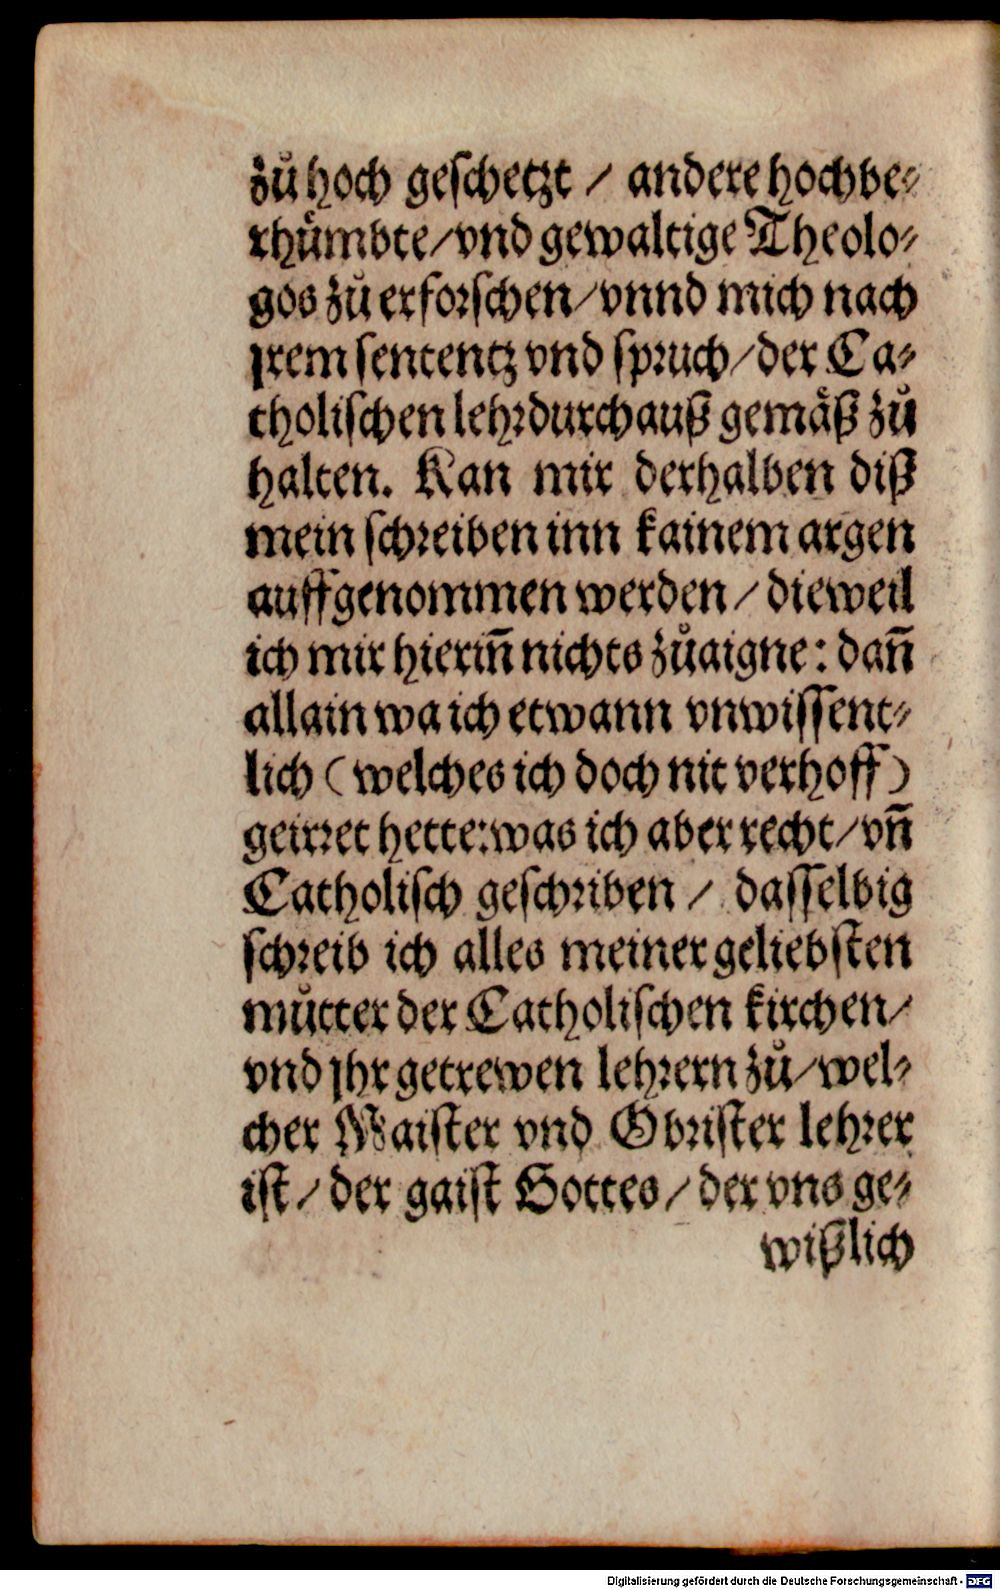 zů hoch geschetzt / andere hochbe⸗
rhůmbte/vnd gewaltige Theolo⸗
gos zů erforschen/vnnd mich nach
jrem sententz vnd spruch/der Ca⸗
tholischen lehrdurchauß gemäß zů
halten. Kan mir derhalben diß
mein schreiben inn kainem argen
auffgenommen werden/dieweil
ich mir hierin̄ nichts zůaigne: dan̄
allain wa ich etwann vnwissent⸗
lich (welches ich doch nit verhoff)
geirret hette:was ich aber recht/vn̄
Catholisch geschriben / dasselbig
schreib ich alles meiner geliebsten
můtter der Catholischen kirchen/
vnd jhr getrewen lehrern zů/wel⸗
cher Maister vnd Obrister lehrer
ist/der gaist Gottes/der vns ge⸗
wißlich
Digitalisierung gefördert durch die Deutsche Forschungsgemeinschaft - DFG